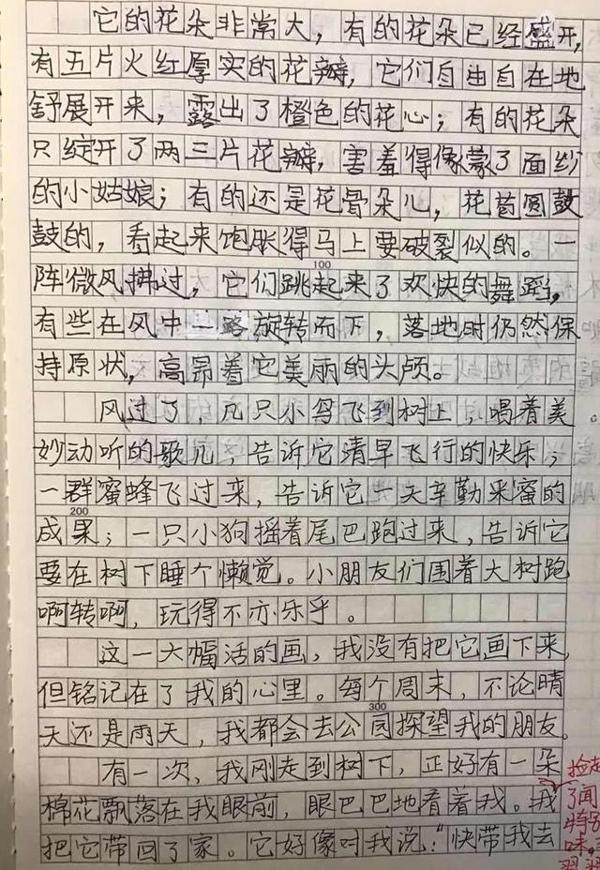 它的花朵非常大，有的花朵已经盛开，
有五片火红厚实的花瓣，它们自由自在地
舒展开来，露出了橙色的花心；有的花朵
只绽开了两三片花瓣，害羞得像蒙了面纱
的小姑娘；有的还是花骨朵儿，花苞圆鼓
鼓的，看起来饱胀得马上要破裂似的。一
阵微风拂过，它们跳起来了欢快的舞蹈，
100
有些在风中一路旋转而下，落地时仍然保
持原状，高昂着它美丽的头颅。
风过了，几只小鸟飞到树上，唱着美
妙动听的歌儿，告诉它清早飞行的快乐；
一群蜜蜂飞过来，告诉它一天辛勤采蜜的
成果；一只小狗摇着尾巴跑过来，告诉它
200
要在树下睡个懒觉。小朋友们围着大树跑
啊转啊，玩得不亦乐乎。
这一大幅活的画，我没有把它画下来，
但铭记在了我的心里。每个周末，不论晴
天还是雨天，我都会去公园探望我的朋友。
300
有一次，我刚走到树下，正好有一朵
棉花飘落在我眼前，眼巴巴地看着我。我
把它带回了家。它好像对我说：“快带我去
捡起
了闻
特别
味